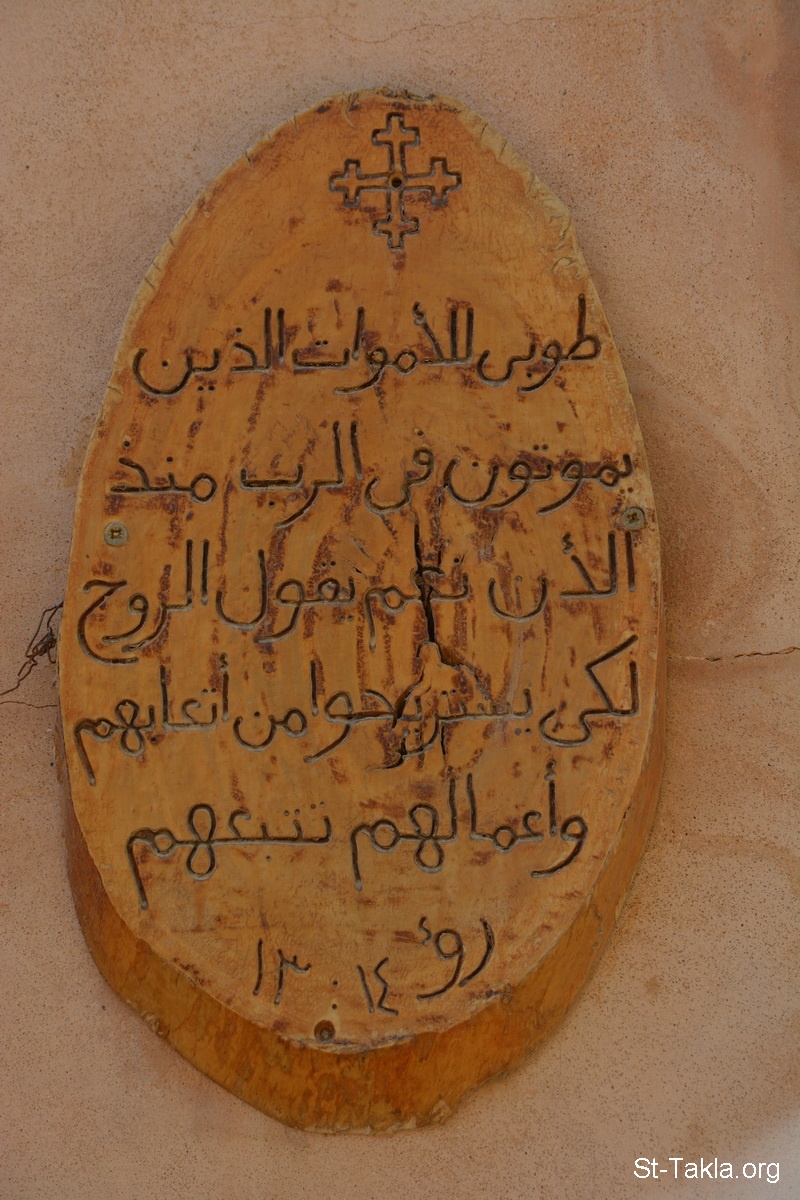 طوبى للأموات الذين
يموتون فى الرب منذ
الأن نعم يقول الروح
لكى يستريحوا من أتعابهم
وأعمالهم تتبعهم
رؤ ١٤ : ١٣
St-Takla.org